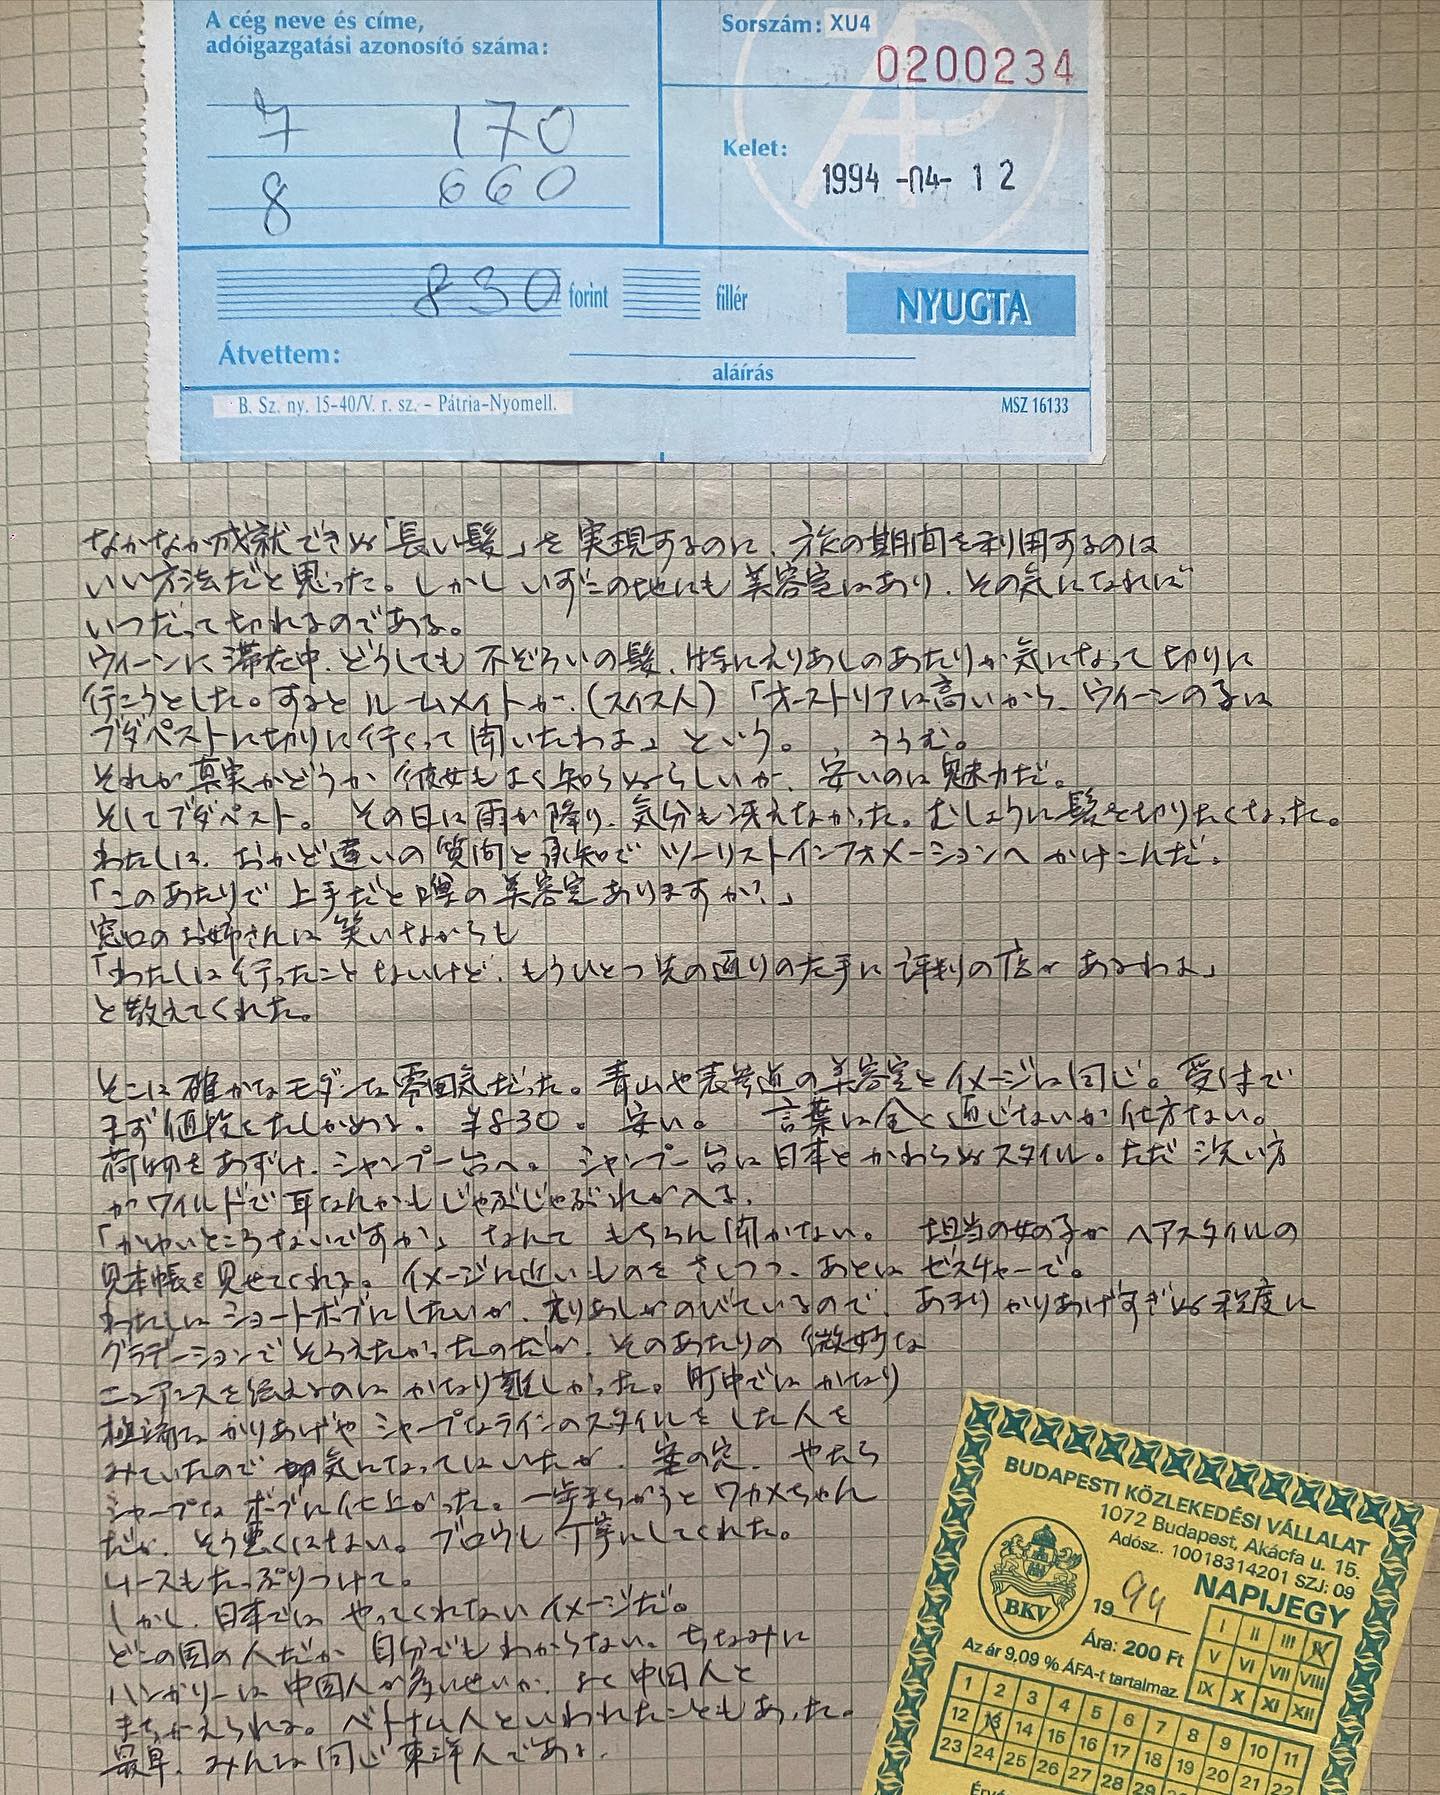 A cég neve és címe,
adóigazgatási azonosító száma:
7 170
8 660
830 forint fillér
Átvettem:
aláírás
B. Sz. ny. 15-40/V. r. sz. - Pátria-Nyomell.
Sorszám: XU4
0200234
Kelet:
1994 -04- 12
NYUGTA
MSZ 16133
なかなか成就できぬ「長い髪」を実現するのに、旅の期間を利用するのは
いい方法だと思った。しかしいずこの地にも美容室はあり、その気になれば
いつだって切れるのである。
ウィーンに滞在中、どうしても不ぞろいの髪、特にえりあしのあたりが気になって切りに
行こうとした。するとルームメイトが、(スイス人)「オーストリアは高いから、ウィーンの子は
ブダペストに切りに行くって聞いたわよ」という。、ううむ。
それが真実かどうか彼女もよく知らぬらしいが、安いのは魅力だ。
そしてブダペスト。その日は雨が降り、気分も冴えなかった。むしょうに髪を切りたくなった。
わたしは、おかど違いの質問と承知でツーリストインフォメーションへかけこんだ。
「このあたりで上手だと噂の美容室ありますか?」
窓口のお姉さんは笑いながらも
「わたしは行ったことないけど、もうひとつ先の通りの左手に評判の店があるわよ」
と教えてくれた。
そこは確かなモダンな雰囲気だった。青山や表参道の美容室とイメージは同じ。受付で
まず値段をたしかめる。¥830。安い。言葉は全く通じないが仕方ない。
荷物をあずけ、シャンプー台へ。シャンプー台は日本とかわらぬスタイル。ただ洗い方
がワイルドで耳なんかもじゃぶじゃぶ水が入る。
「かゆいところないですか」なんてもちろん聞かない。担当の女の子がヘアスタイルの
見本帳を見せてくれる。イメージに近いものをさしつつ、あとはゼスチャーで。
わたしはショートボブにしたいが、えりあしがのびているので、あまりかりあげすぎぬ程度に
グラデーションでそろえたかったのだが、そのあたりの微妙な
ニュアンスを伝えるのはかなり難しかった。町中ではかなり
極端なかりあげやシャープなラインのスタイルをした人を
みていたので気になってはいたが、案の定、やたら
シャープなボブに仕上がった。一歩まちがうとワカメちゃん
だが、そう悪くはない。ブロウも丁寧にしてくれた。
ムースもたっぷりつけて。
しかし、日本ではやってくれないイメージだ。
どこの国の人だか自分でもわからない。ちなみに
ハンガリーは中国人が多いせいか、よく中国人と
まちがえられる。ベトナム人といわれたこともあった。
最早、みんな同じ東洋人である。
BUDAPESTI KÖZLEKEDÉSI VÁLLALAT
1072 Budapest, Akácfa u. 15.
Adósz.. 10018314201 SZJ: 09
NAPIJEGY
BKV
1994
Ára: 200 Ft
Az ár 9,09 % ÁFA-t tartalmaz
I II III IV
V VI VII VIII
IX X XI XII
1 2 3 4 5 6 7 8 9 10 11
12 13 14 15 16 17 18 19 20 21 22
23 24 25 26 27 28 29